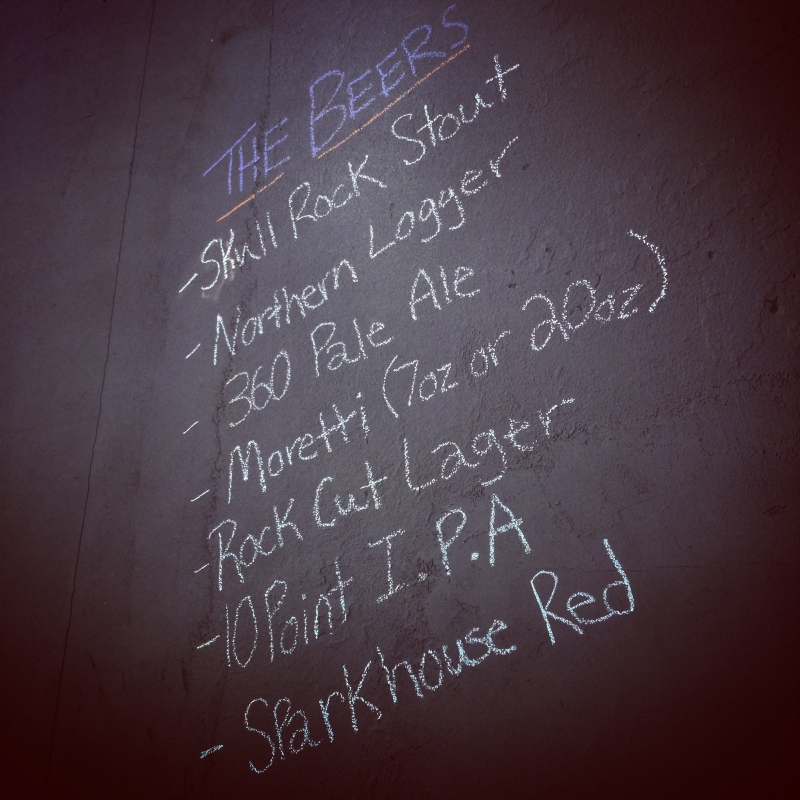 THE BEERS
- Skull Rock Stout
- Northern Logger
- 360 Pale Ale
- Moretti (7oz or 20oz)
- Rock Cut Lager
- 10 Point I.P.A
- Sparkhouse Red